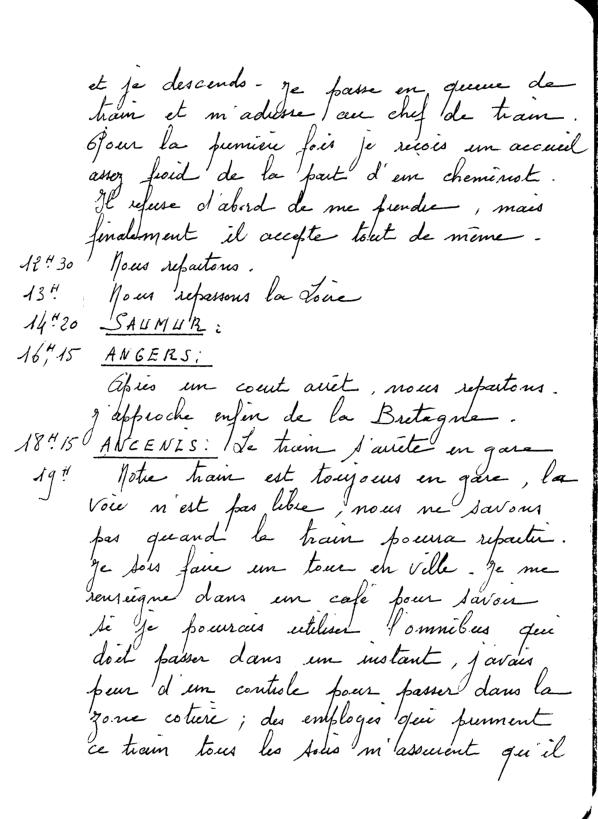 et je descends - Je passe en queue de
train et m'adresse au chef de train.
Pour la première fois je reçois un accueil
assez froid de la part d'un cheminot.
Il refuse d'abord de me prendre, mais
finalement il accepte tout de même.
12H30 Nous repartons.
13H. Nous repassons la Loire
14H20 SAUMUR:
16H15 ANGERS:
Après un court arrêt, nous repartons.
J'approche enfin de la Bretagne.
18H15 ANCENIS: Le train s'arrête en gare
19H Notre train est toujours en gare, la
voie n'est pas libre, nous ne savons
pas quand le train pourra repartir.
Je sors faire un tour en ville. Je me
renseigne dans un café pour savoir
si je pourrais utiliser l'omnibus qui
doit passer dans un instant, j'avais
peur d'un controle pour passer dans la
zone cotière; des employés qui prennent
ce train tous les soirs m'assurent qu'il